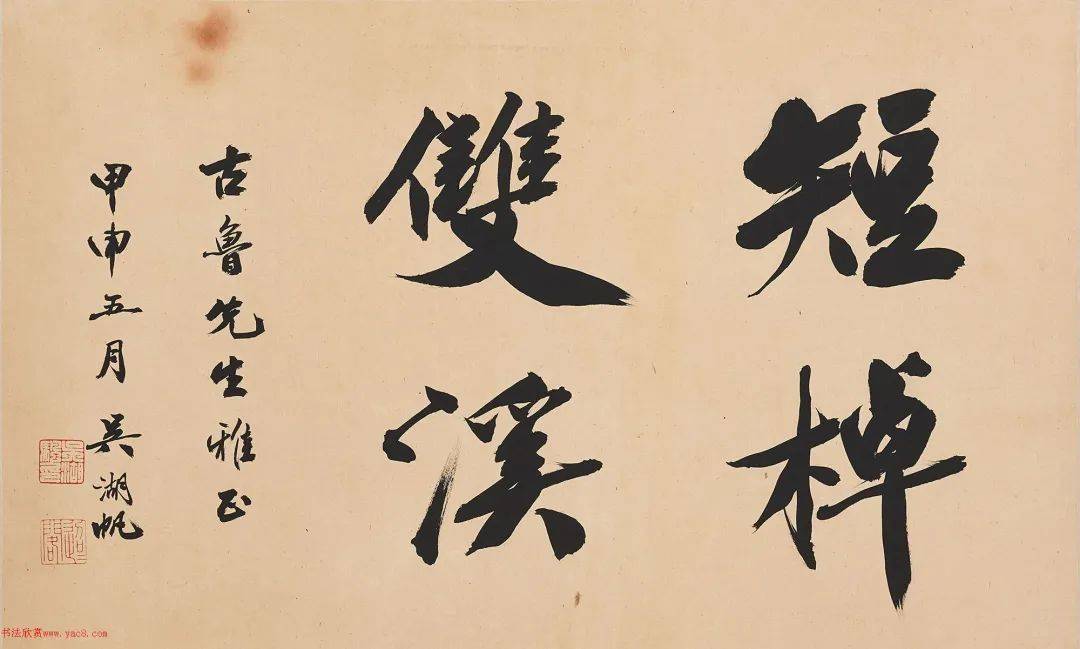 短棹
雙溪
古魯先生雅正
甲申五月吳湖帆
书法欣赏www.yac8.com